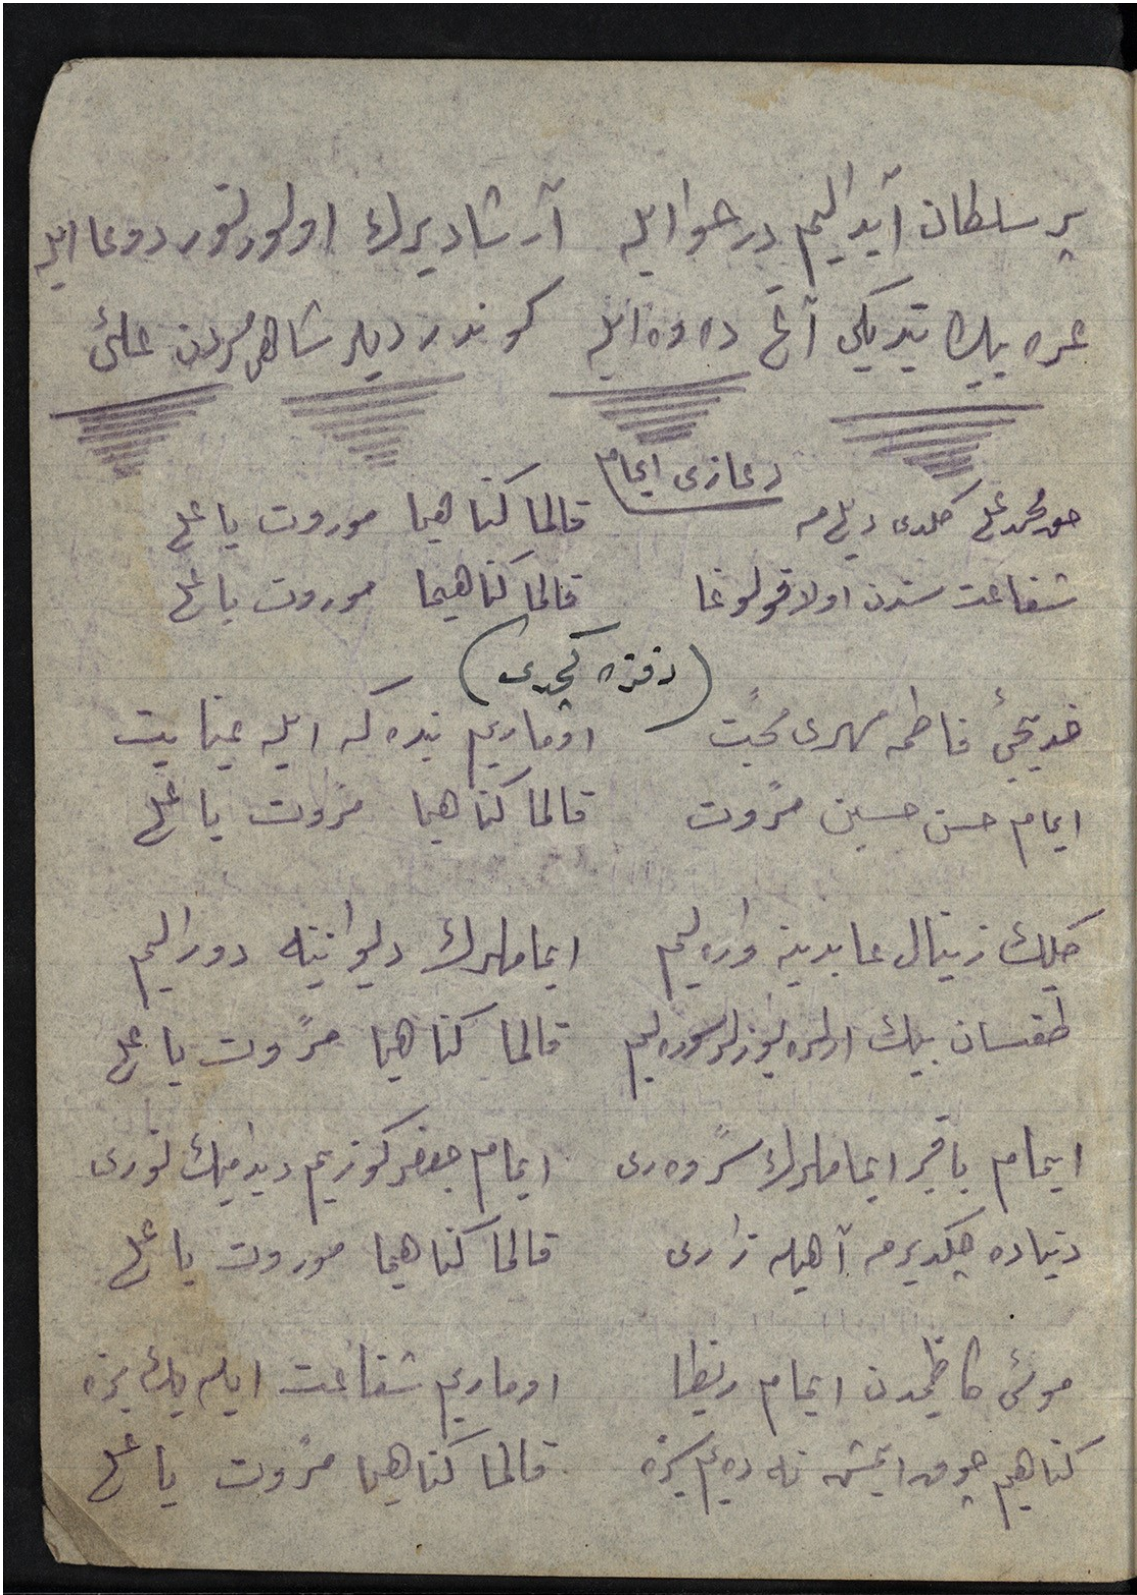 پر سلطان آیدالیم در حوایله آرشا دیرك اولور لنور دوعا ایله
عره بیك تدیکی آغ ده وه ایله کوندردیلر شاهی مردن علئ
دعازی ایمام
حق محمد علی کلدی دیلمه قالما کناهیما موروت یا علی
شفاعت سندن اولا قولوغا قالما کناهیما موروت یا علی
(دفتره کچدی)
خدیجئ فاطمه مهری محبّت اوماریم بنده که ایله عینایت
ایمام حسن حسین مرّوت قالما کناهیما مرّوت یا علی
کلیك زینال عابدینه واره لیم ایماملرك دیوانینه دورالیم
طقسان بیك ارلره یوزلر سوره لیم قالما کناهیما مرّوت یا علی
ایمام باقیر ایماملرك سروه ری ایمام جعفر کوزیم دیدمیك نوری
دنیاده چکدیرمه آهیله زاری قالما کناهیما موروت یا علی
موسئ کاظیمدن ایمام ریظا اوماریم شفاعت ایلیه بیزه
کناهیم چوق ایمش نه دییم سیزه قالما کناهیما مرّوت یا علی